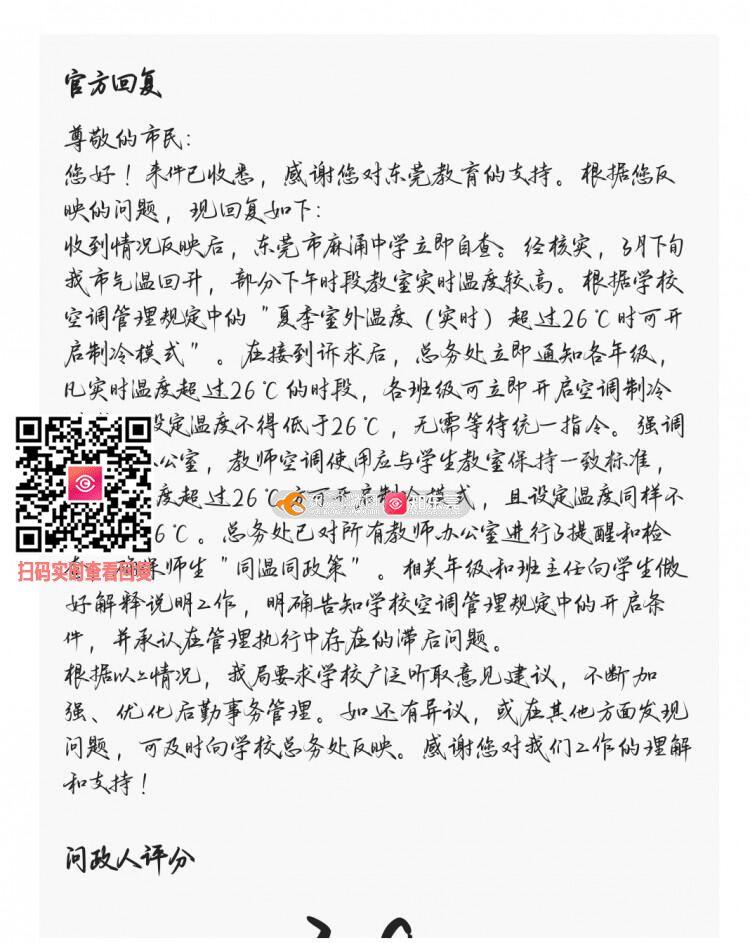 官方回复
尊敬的市民：
您好！来件已收悉，感谢您对东莞教育的支持。根据您反
映的问题，现回复如下：
收到情况反映后，东莞市麻涌中学立即自查。经核实，3月下旬
我市气温回升，部分下午时段教室实时温度较高。根据学校
空调管理规定中的"夏季室外温度（实时）超过26℃时可开
启制冷模式"。在接到诉求后，总务处立即通知各年级，
凡实时温度超过26℃的时段，各班级可立即开启空调制冷
设定温度不得低于26℃，无需等待统一指令。强调
公室，教师空调使用应与学生教室保持一致标准，
度超过26℃方可开启制冷模式，且设定温度同样不
6℃。总务处已对所有教师办公室进行了提醒和检
师生"同温同政策"。相关年级和班主任向学生做
扫码实时查看回复
好解释说明工作，明确告知学校空调管理规定中的开启条
件，并承认在管理执行中存在的滞后问题。
根据以上情况，我局要求学校广泛听取意见建议，不断加
强、优化后勤事务管理。如还有异议，或在其他方面发现
问题，可及时向学校总务处反映。感谢您对我们工作的理解
和支持！
问政人评分